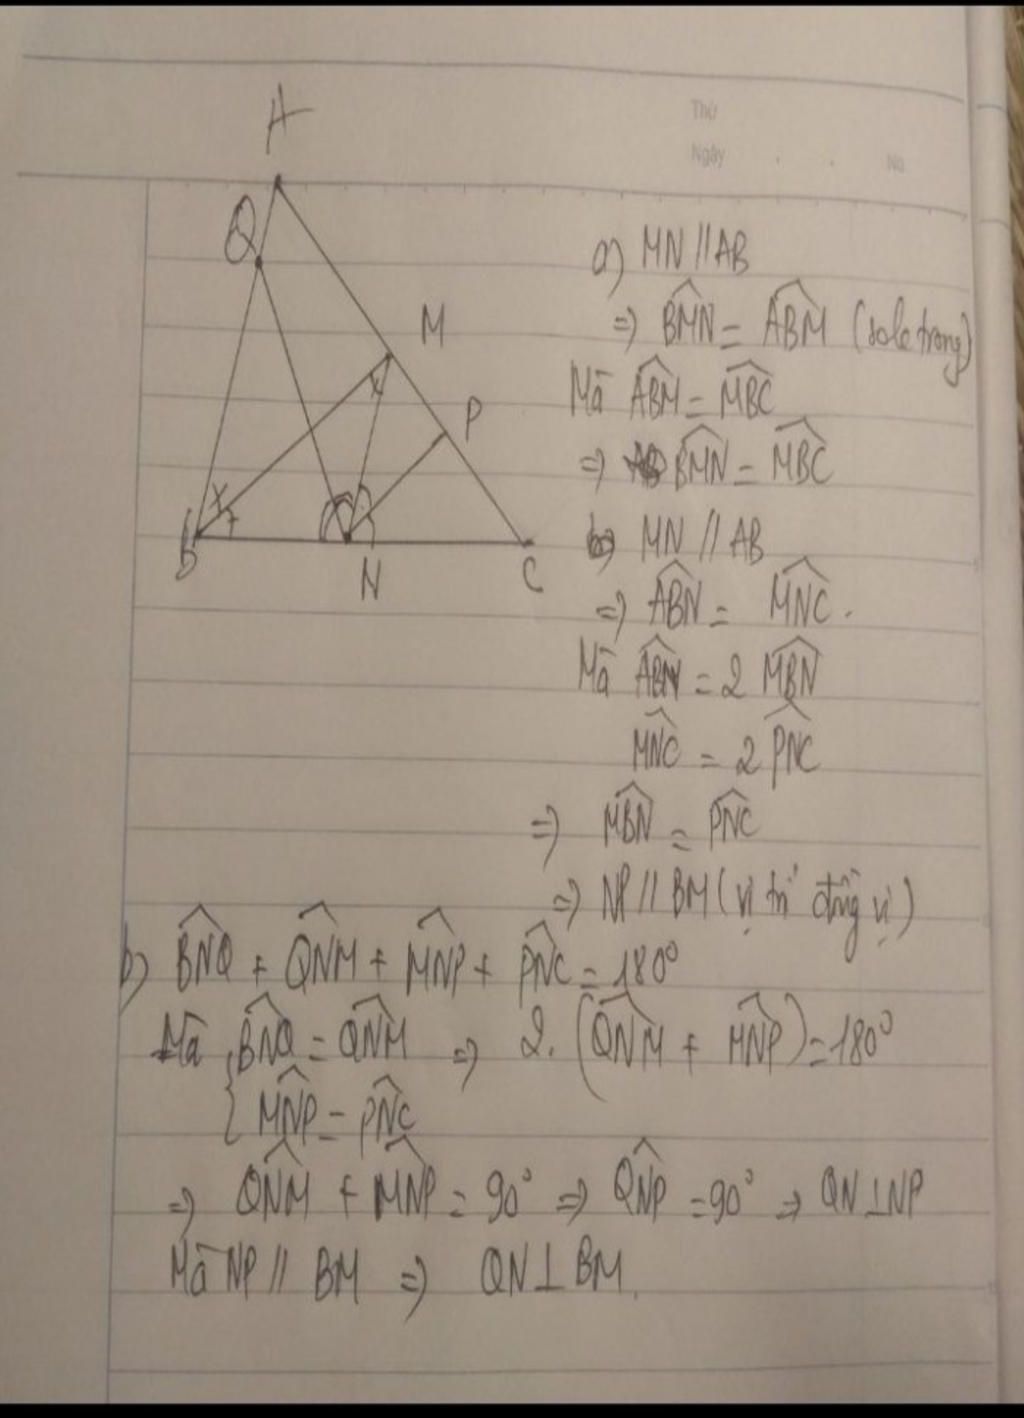 A
Thứ
Ngày . . No
Q
a) MN // AB
M
=> \widehat{BMN} = \widehat{ABM} (sole trong)
Mà \widehat{ABM} = \widehat{MBC}
P
=> \widehat{BMN} = \widehat{MBC}
MN // AB
B
N
C
=> \widehat{ABN} = \widehat{MNC}.
Mà \widehat{ABN} = 2 \widehat{MBN}
\widehat{MNC} = 2 \widehat{PNC}
=> \widehat{MBN} = \widehat{PNC}
=> NP // BM (vị trí đồng vị)
b) \widehat{BNQ} + \widehat{QNM} + \widehat{MNP} + \widehat{PNC} = 180°
Mà { \widehat{BNQ} = \widehat{QNM} => 2. (\widehat{QNM} + \widehat{MNP}) = 180°
\widehat{MNP} = \widehat{PNC}
=> \widehat{QNM} + \widehat{MNP} = 90° => \widehat{QNP} = 90° => QN ⊥ NP
Mà NP // BM => QN ⊥ BM.